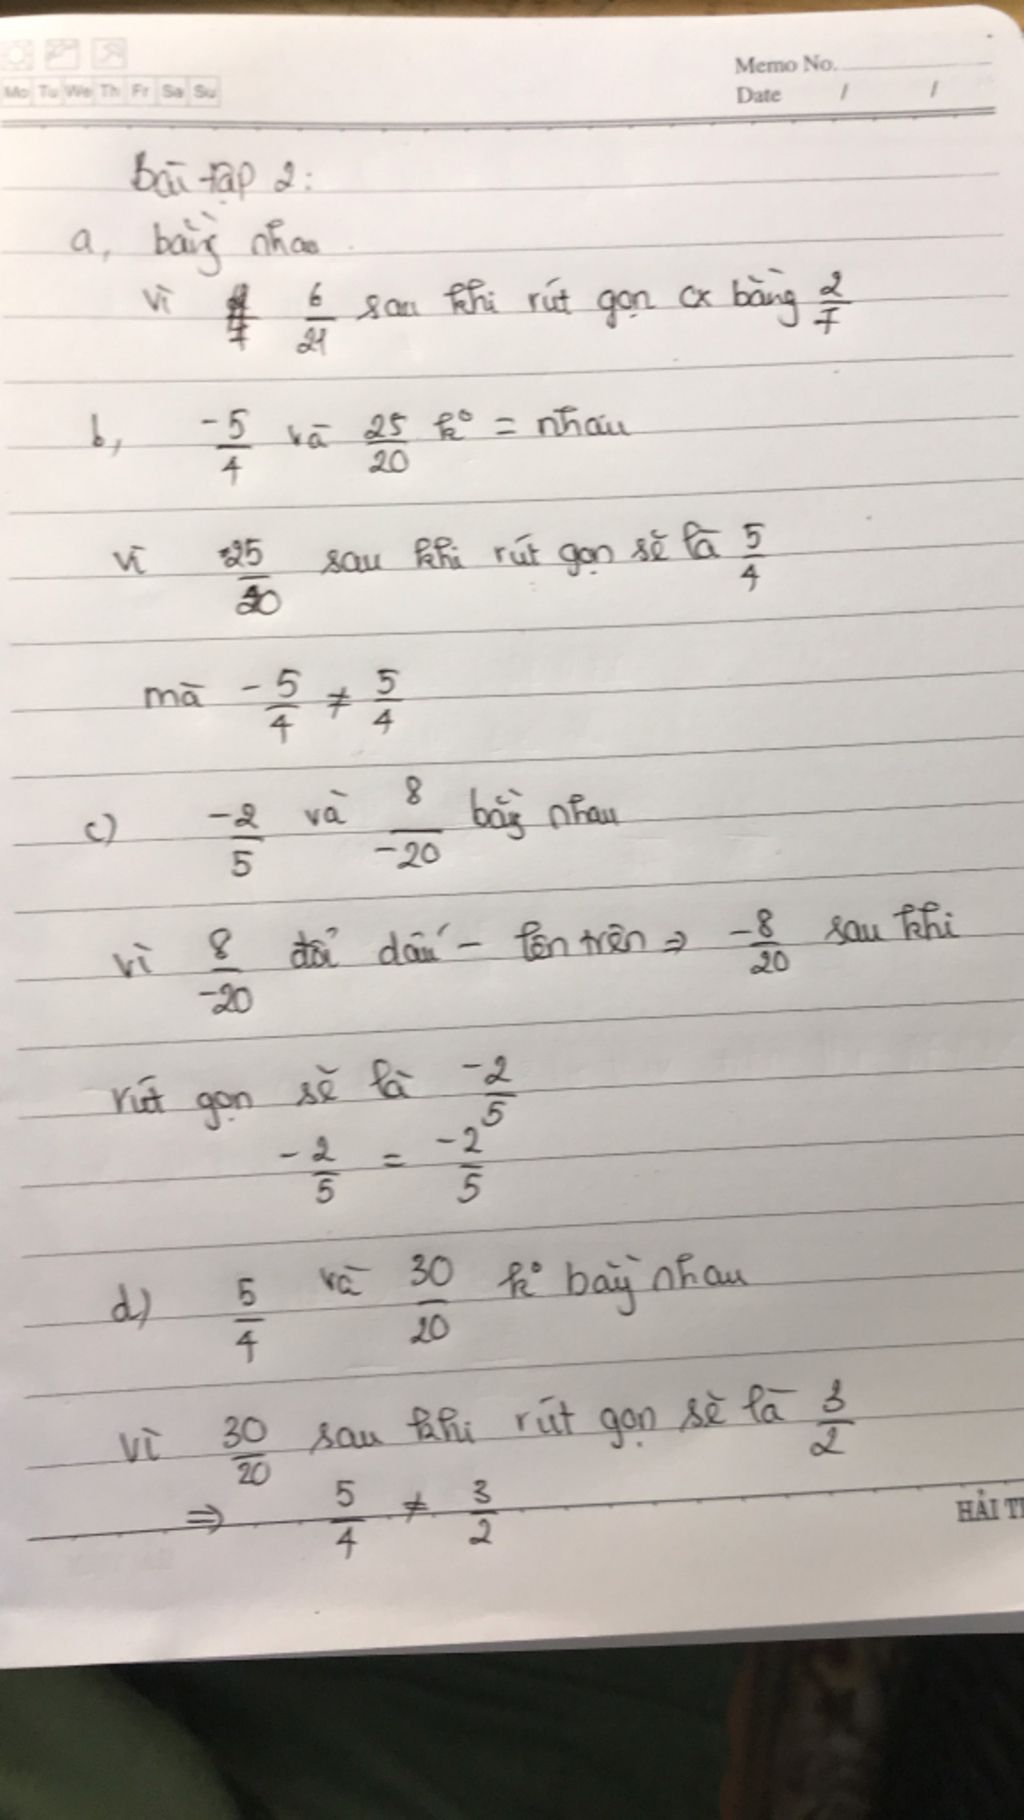 Mo Tu We Th Fr Sa Su
Memo No.
Date / /
bài tập 2:
a, bằng nhau
vì 6/21 sau khi rút gọn cx bằng 2/7
b, -5/4 và 25/20 k° = nhau
vì 25/20 sau khi rút gọn sẽ là 5/4
mà -5/4 ≠ 5/4
c) -2/5 và 8/-20 bằng nhau
vì 8/-20 đổi dấu - lên trên => -8/20 sau khi
rút gọn sẽ là -2/5
-2/5 = -2/5
d) 5/4 và 30/20 k° bằng nhau
vì 30/20 sau khi rút gọn sẽ là 3/2
=> 5/4 ≠ 3/2
HẢI T